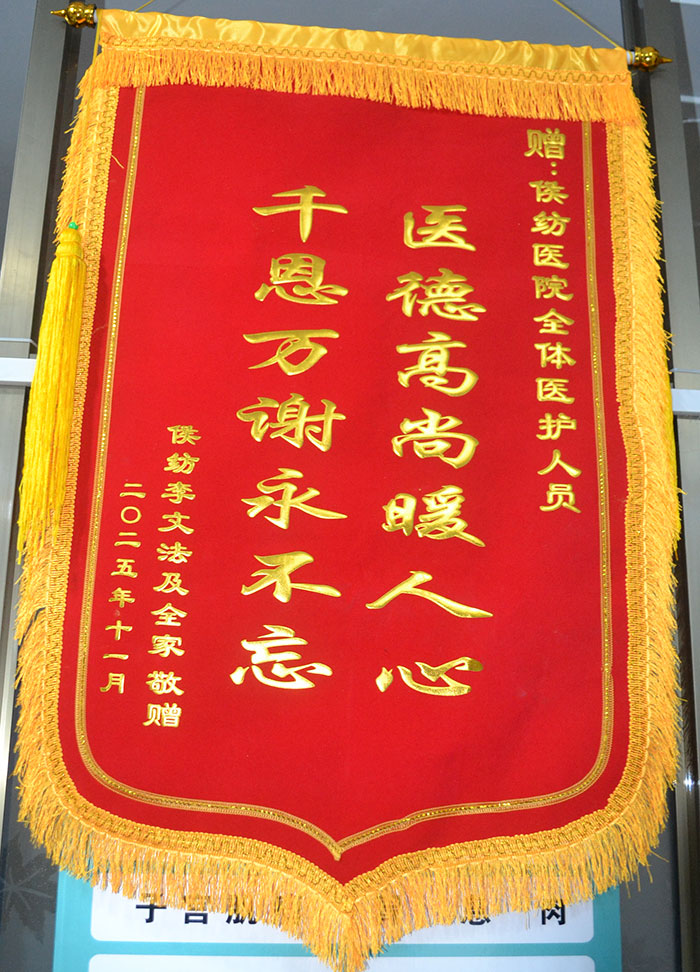 赠:侯纺医院全体医护人员
医德高尚暖人心
千恩万谢永不忘
侯纺李文法及全家 敬赠
二〇二五年十一月